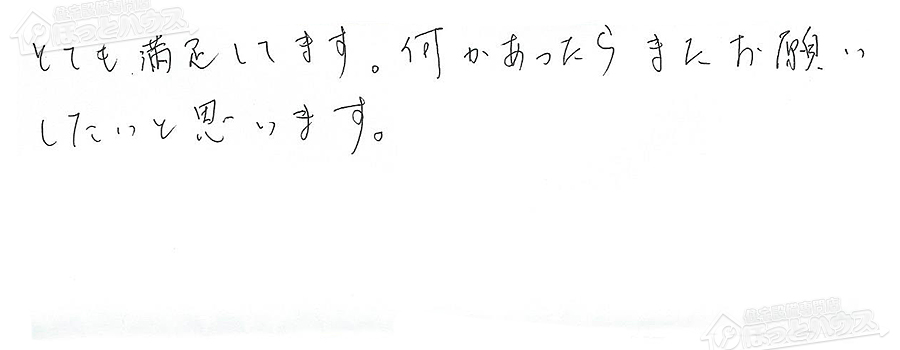 とても満足してます。何かあったらまたお願い
したいと思います。
ほっとハウス
ほっとハウス